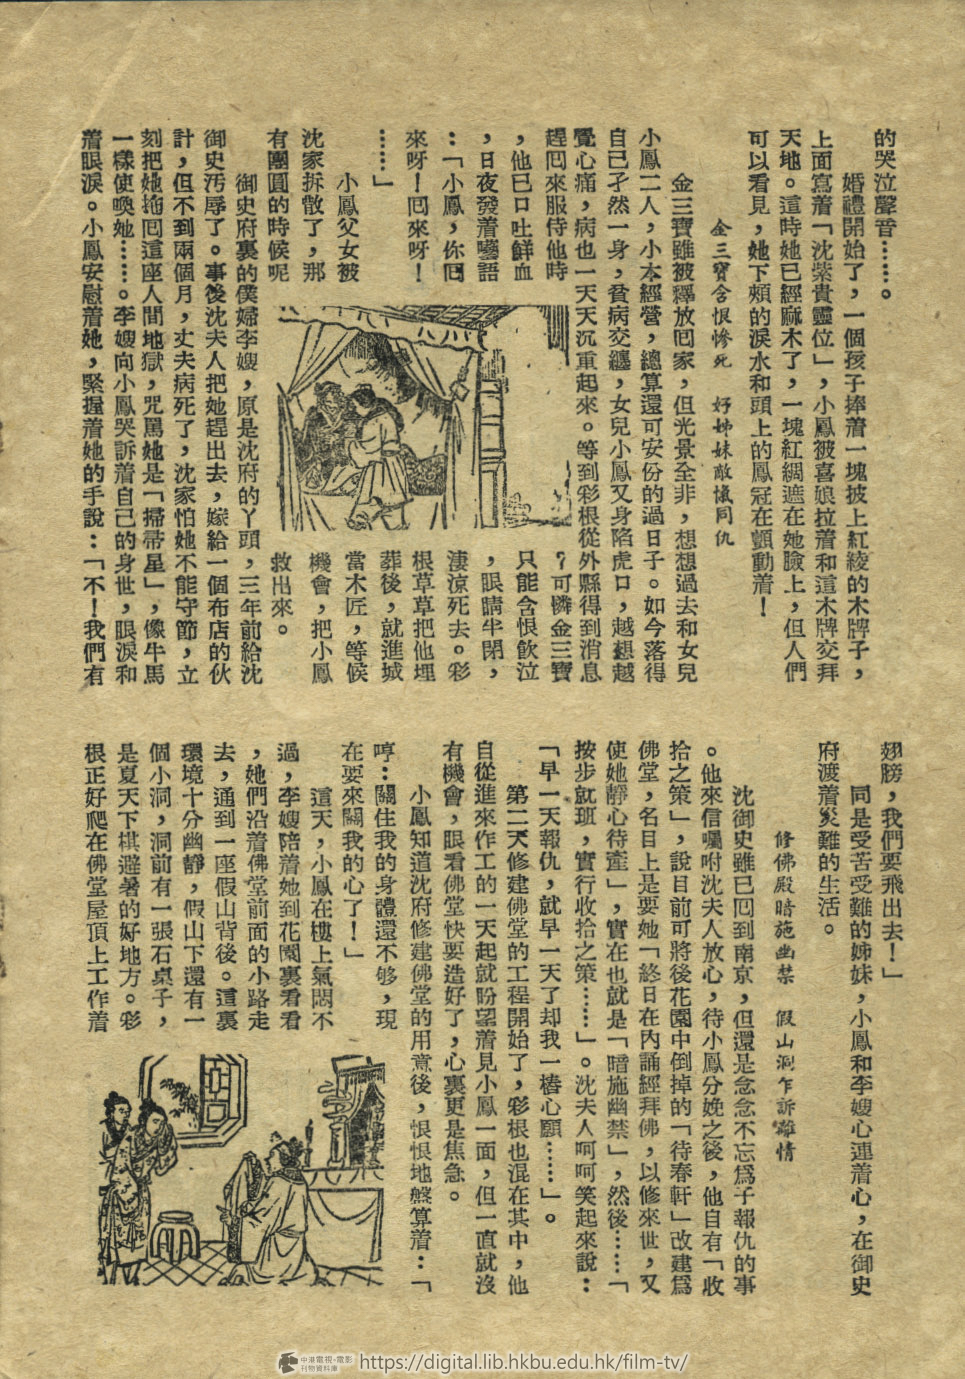 的哭泣聲音……。
婚禮開始了，一個孩子捧着一塊披上紅綾的木牌子，
上面寫着「沈紫貴靈位」，小鳳被喜娘拉着和這木牌交拜
天地。這時她已經麻木了，一塊紅綢遮在她臉上，但人們
可以看見，她下頰的淚水和頭上的鳳冠在顫動着！
金三寶含恨慘死　好姊妹敵愾同仇
金三寶雖被釋放囘家，但光景全非，想想過去和女兒
小鳳二人，小本經營，總算還可安份的過日子。如今落得
自己孑然一身，貧病交纏，女兒小鳳又身陷虎口，越想越
覺心痛，病也一天天沉重起來。等到彩根從外縣得到消息
趕囘來服侍他時
，他已口吐鮮血
，日夜發着囈語
：「小鳳，你囘
來呀！囘來呀！
……」
小鳳父女被
沈家拆散了，那
有團圓的時候呢
？可憐金三寶
只能含恨飲泣
，眼睛半閉，
淒涼死去。彩
根草草把他埋
葬後，就進城
當木匠，等候
機會，把小鳳
救出來。
御史府裏的僕婦李嫂，原是沈府的丫頭，三年前給沈
御史汚辱了。事後沈夫人把她趕出去，嫁給一個布店的伙
計，但不到兩個月，丈夫病死了，沈家怕她不能守節，立
刻把她拖囘這座人間地獄，咒罵她是「掃帚星」，像牛馬
一樣使喚她……。李嫂向小鳳哭訴着自己的身世，眼淚和
着眼淚。小鳳安慰着她，緊握着她的手說：「不！我們有
翅膀，我們要飛出去！」
同是受苦受難的姊妹，小鳳和李嫂心連着心，在御史
府渡着災難的生活。
修佛殿暗施幽禁　假山洞乍訴離情
沈御史雖已囘到南京，但還是念念不忘爲子報仇的事
。他來信囑咐沈夫人放心，待小鳳分娩之後，他自有「收
拾之策」，說目前可將後花園中倒掉的「待春軒」改建爲
佛堂，名目上是要她「終日在內誦經拜佛，以修來世，又
使她靜心待產」，實在也就是「暗施幽禁」，然後……「
按步就班，實行收拾之策……」。沈夫人呵呵笑起來說：
「早一天報仇，就早一天了却我一樁心願……」。
第二天修建佛堂的工程開始了，彩根也混在其中，他
自從進來作工的一天起就盼望着見小鳳一面，但一直就沒
有機會，眼看佛堂快要造好了，心裏更是焦急。
小鳳知道沈府修建佛堂的用意後，恨恨地盤算着：「
哼：關住我的身體還不够，現
在要來關我的心了！」
這天，小鳳在樓上氣悶不
過，李嫂陪着她到花園裏看看
，她們沿着佛堂前面的小路走
去，通到一座假山背後。這裏
環境十分幽靜，假山下還有一
個小洞，洞前有一張石桌子，
是夏天下棋避暑的好地方。彩
根正好爬在佛堂屋頂上工作着
中港電視·電影
刊物資料庫
https://digital.lib.hkbu.edu.hk/film-tv/